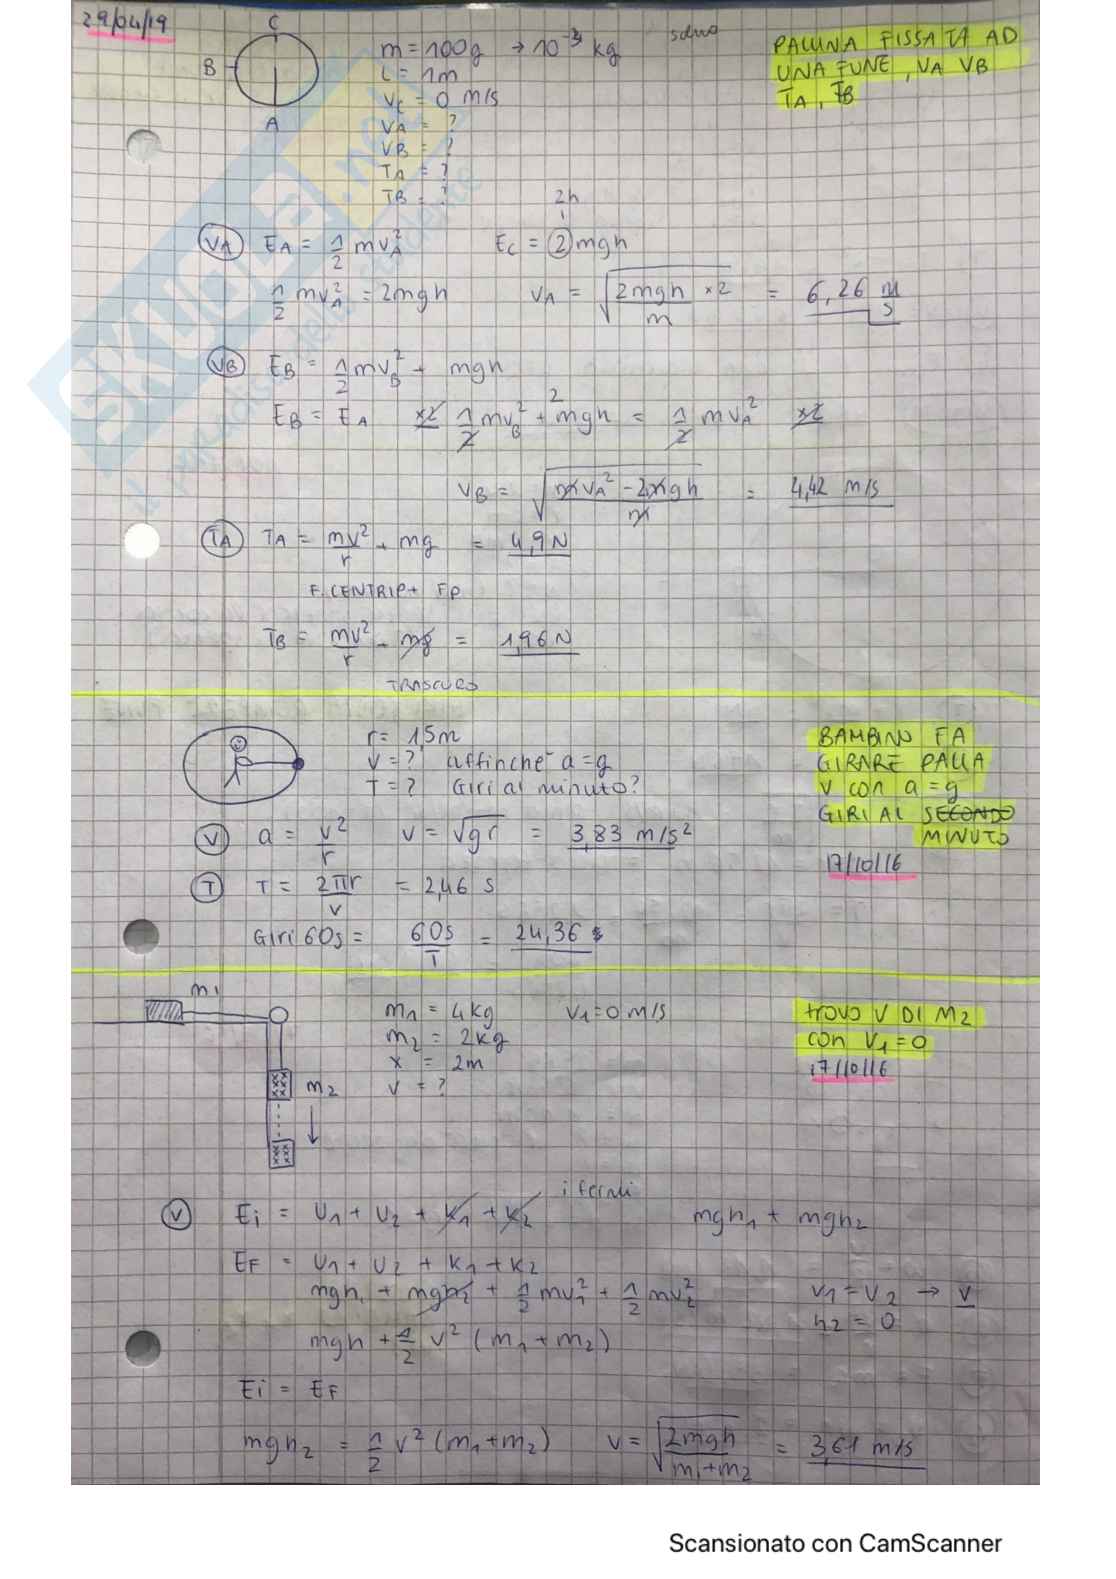 29/04/19
C
B
A
m = 100g → 10⁻³ kg
L = 1m
Vc = 0 m/s
VA = ?
VB = ?
TA = ?
TB = ?
PALLINA FISSATA AD
UNA FUNE, VA VB
TA, TB
2h
VA EA = 1/2 mvA² Ec = 2mgh
1/2 mvA² = 2mgh vA = √(2mgh ×2 / m) = 6,26 m/s
VB EB = 1/2 mvB² + mgh
EB = EA ×2 1/2 mvB² + 2 mgh = 1/2 mvA² ×2
VB = √(mvA² - 2mgh / m) = 4,42 m/s
TA TA = mv²/r + mg = 4,9 N
F. CENTRIP + Fp
TB = mv²/r - mg = 1,96 N
TRASCURO
r = 1,5m
V = ? affinché a = g
T = ? Giri al minuto?
BAMBINO FA
GIRARE PALLA
V con a = g
GIRI AL SECONDO
MINUTO
17/10/16
V a = v²/r v = √gr = 3,83 m/s²
T T = 2πr/v = 2,46 s
Giri 60s = 60s/T = 24,36 s
m1
m2
m1 = 4kg V1 = 0 m/s
m2 = 2kg
x = 2m
v = ?
trovo V DI M2
con V1 = 0
17/10/16
i fermi
V Ei = U1 + U2 + K1 + K2 mgh1 + mgh2
EF = U1 + U2 + K1 + K2
mgh1 + mgh2 + 1/2 mv1² + 1/2 mv2² V1 = V2 → V
h2 = 0
mgh + 1/2 v² (m1 + m2)
Ei = EF
mgh2 = 1/2 v² (m1+m2) v = √(2mgh / m1+m2) = 3,61 m/s
SKUOLA.net
Scansionato con CamScanner